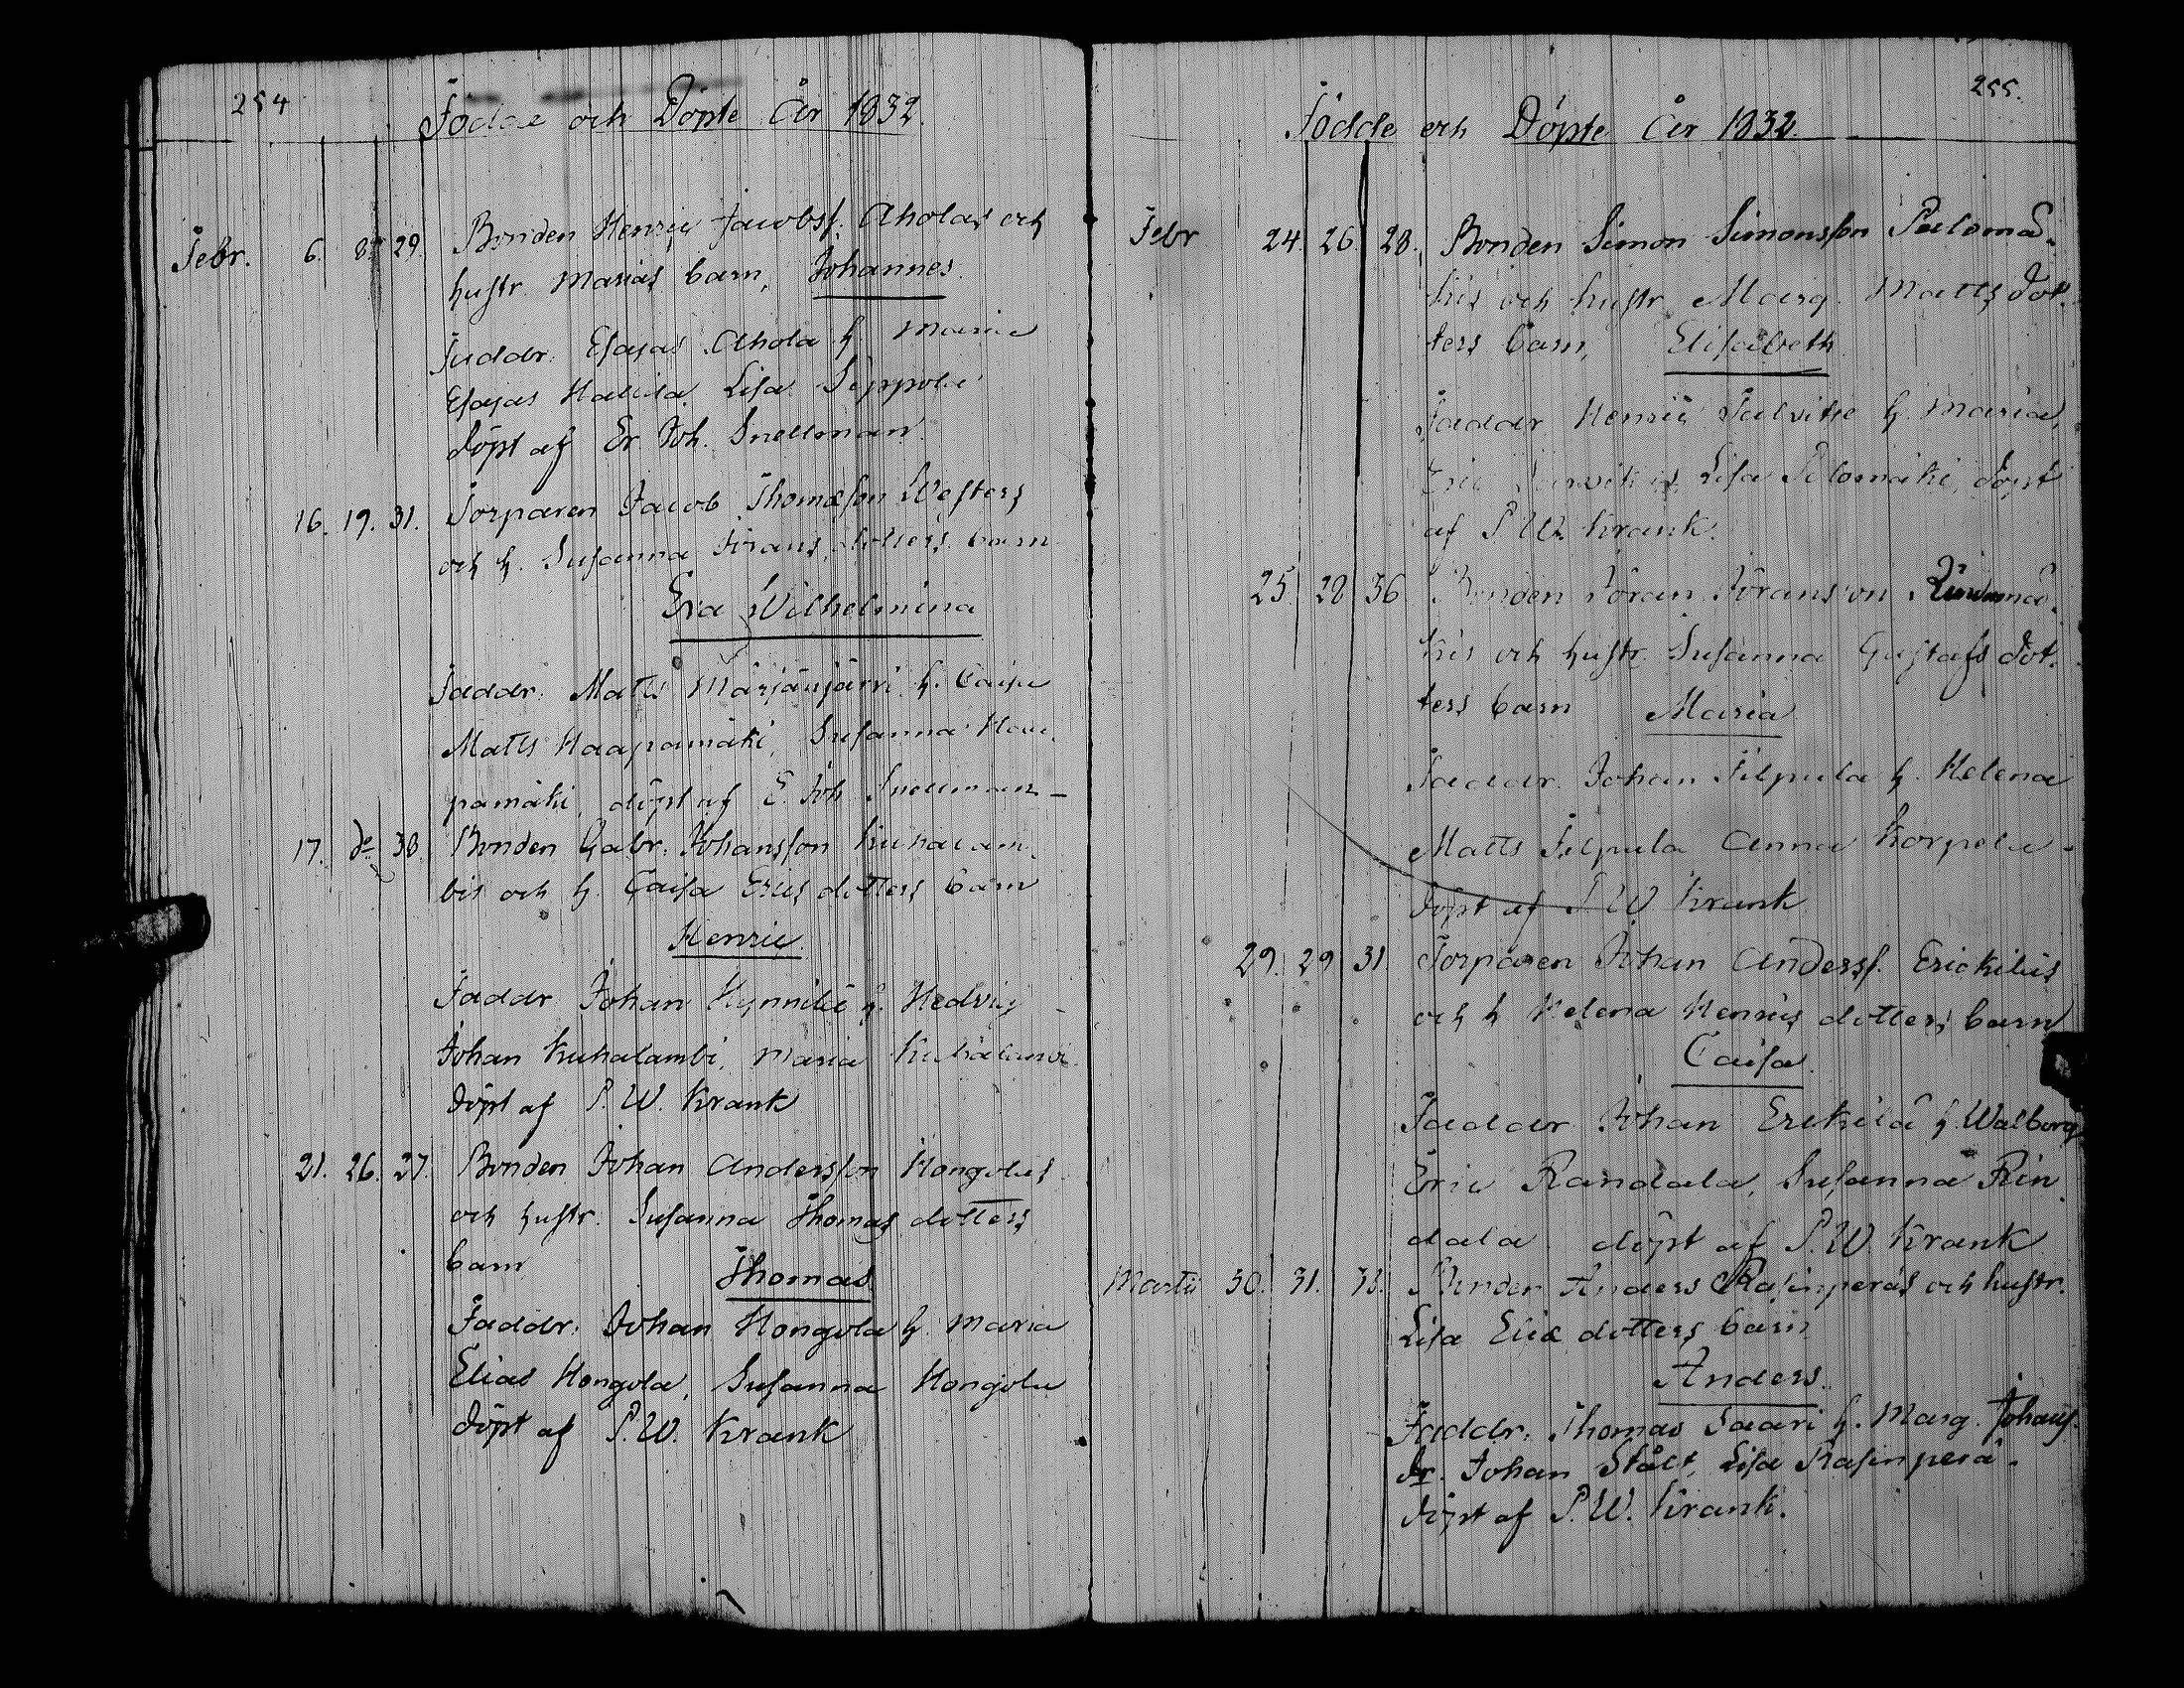 254
Födde och Döpte År 1832.
Febr. 6. 8. 29. Bonden Henric Jacobss. Aholas och
hustr. Marias barn, Johannes.
Faddr. Esaias Ahola h. Maria
Esaias Lisa Seppola
döpt af Er. Joh. Snellman.
16. 19. 31. Torparen Jacob Thomasson Westers
och h. Susanna Jörans dotters barn
Eva Wilhelmina
Faddr. Matts Märsänjärvi h. Caisa
Matts Haapamäki, Susanna Haa-
pamäki, döpt af E. Joh Snellman –
17. do 38. Bonden Gabr. Johansson Kuhalam-
bis och h. Caisa Erics dotters barn
Henric.
Faddr Johan Hynnilä h. Hedvig
Johan Kuhalambi, Maria Kuhalambi
döpt af P. W. Krank
21. 26. 27. Bonden Johan Andersson Hongolas
och hustr. Susanna Thomas dotters
barn
Thomas
Faddr. Johan Hongola h. Maria
Elias Hongola, Susanna Hongola
döpt af P. W. Krank
255.
Födde och Döpte År 1832.
Febr 24. 26. 28. Bonden Simon Simonsson Palomä-
kis och hustr Marg. Matts dot-
ters barn, Elisabeth
Faddr Henric h. Maria,
Eric Lisa Palomäki, döpt
af P. W. Krank.
25. 28. 36. Bonden Jöran Jöransson
kis och hustr. Susanna Gustafs dot-
ters barn Maria
Faddr. Johan Filpula h. Helena
Matts Filpula Anna Korpela –
döpt af P. W. Krank
29. 29 31. Torparen Johan Anderss. Erickiläs
och h Helena Henrics dotters barn
Caisa.
Faddr Johan Erickilä h. Walborg
Eric Randala, Susanna Rin
dala döpt af P. W. Krank
Martii 30. 31. 38. Bonden Anders Rasinperäs och hustr.
Lisa Eliæ dotters barn
Anders.
Faddr. Thomas Saari h. Marg. Johans
dr. Johan Stålt, Lisa Rasinperä –
döpt af P. W. Krank.